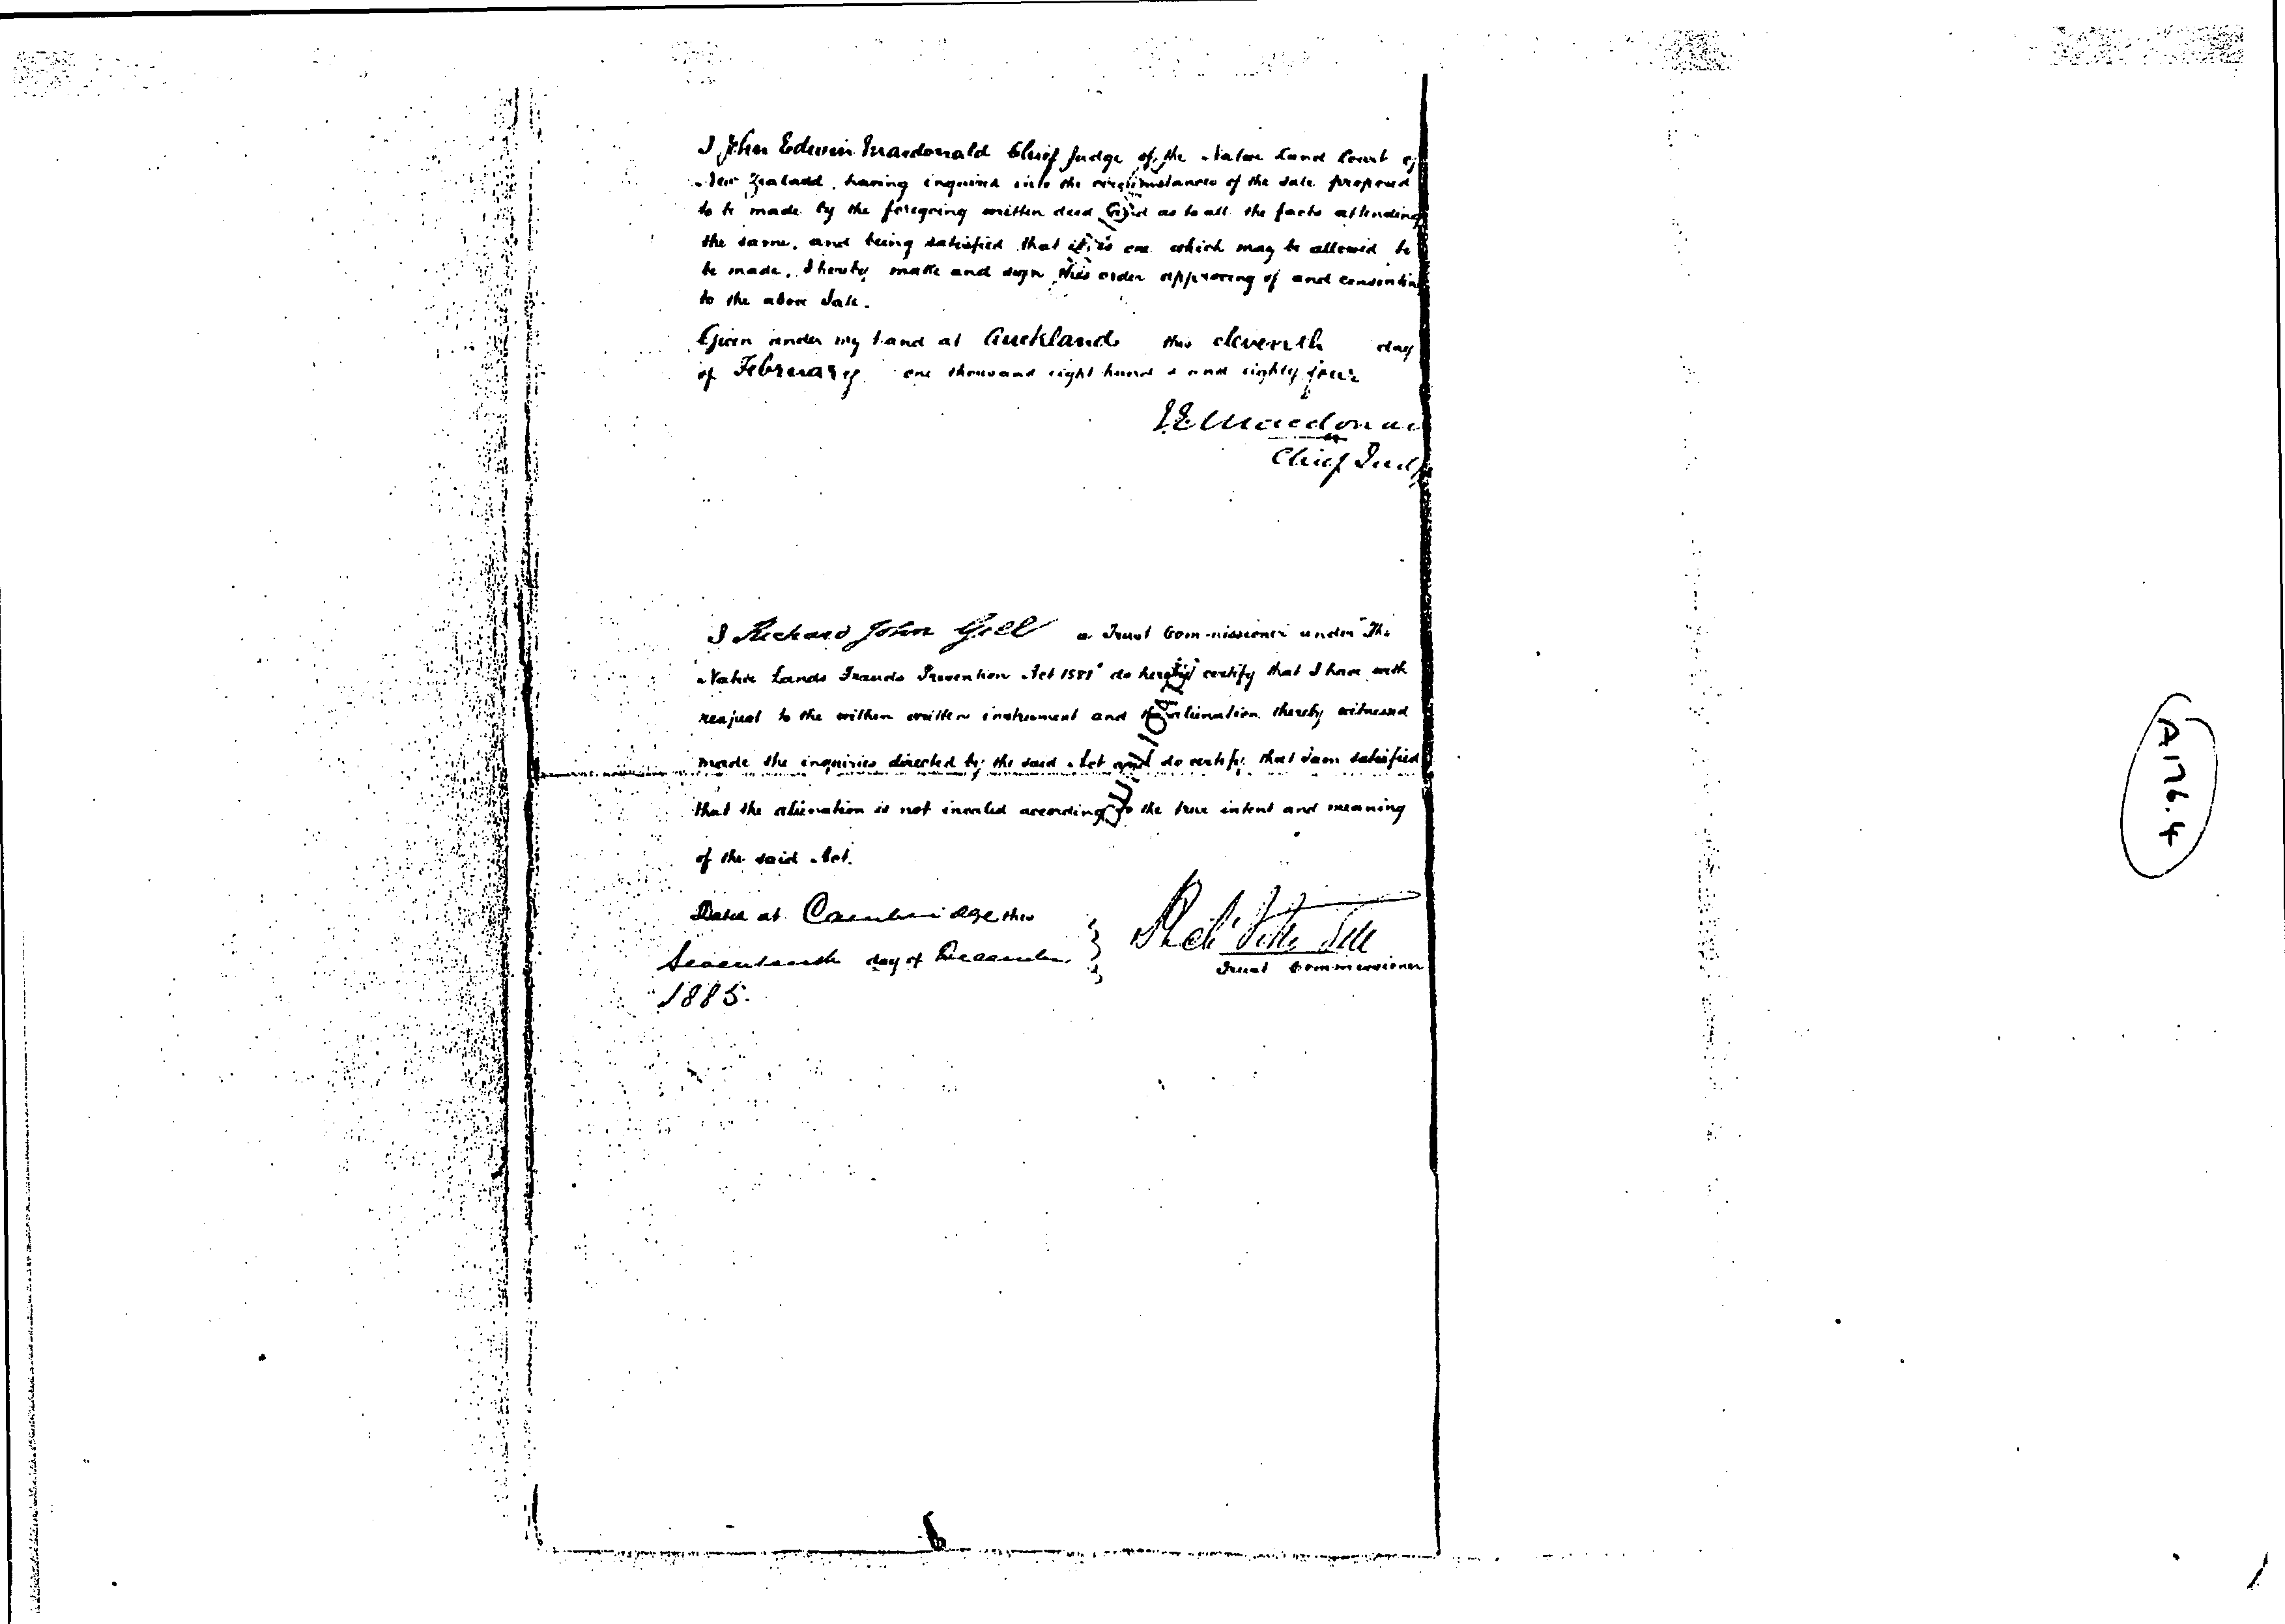 I John Edwin Macdonald Chief Judge of the Native Land Court of
New Zealand, having inquired into the circumstances of the sale proposed
to be made by the foregoing written deed and as to all the facts attending
the same, and being satisfied that it is one which may be allowed to
be made, I hereby make and sign this order approving of and consenting
to the above Sale.
Given under my hand at Auckland this eleventh day
of February one thousand eight hund and eighty four
J E Macdonal
Chief Judg
I Richard John Gill a Trust Commissioner under "The
Native Lands Frauds Prevention Act 1881" do hereby certify that I have with
respect to the within written instrument and the alienation thereby witnessed
made the inquiries directed by the said Act and do certify that I am satisfied
that the alienation is not invalid according to the true intent and meaning
of the said Act.
Dated at Cambridge this
Seventeenth day of December
1885.
Richd John Gill
Trust Commissioner
A176.4